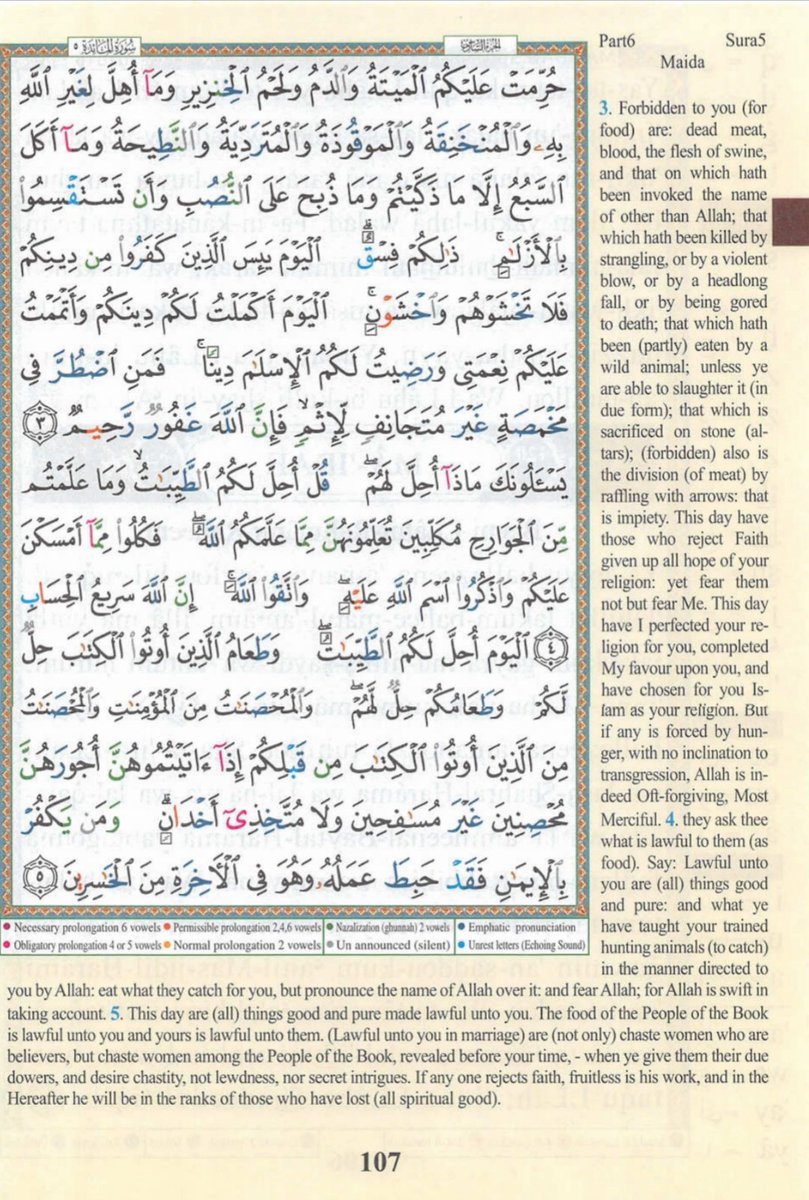 سُورَةُ المَائِدَة ٥
الجزء السادس
Part6 Sura5
Maida
حُرِّمَتْ عَلَيْكُمُ ٱلْمَيْتَةُ وَٱلدَّمُ وَلَحْمُ ٱلْخِنزِيرِ وَمَآ أُهِلَّ لِغَيْرِ ٱللَّهِ
بِهِۦ وَٱلْمُنْخَنِقَةُ وَٱلْمَوْقُوذَةُ وَٱلْمُتَرَدِّيَةُ وَٱلنَّطِيحَةُ وَمَآ أَكَلَ
ٱلسَّبُعُ إِلَّا مَا ذَكَّيْتُمْ وَمَا ذُبِحَ عَلَى ٱلنُّصُبِ وَأَن تَسْتَقْسِمُوا۟
بِٱلْأَزْلَٰمِ ۚ ذَٰلِكُمْ فِسْقٌ ۗ ٱلْيَوْمَ يَئِسَ ٱلَّذِينَ كَفَرُوا۟ مِن دِينِكُمْ
فَلَا تَخْشَوْهُمْ وَٱخْشَوْنِ ۚ ٱلْيَوْمَ أَكْمَلْتُ لَكُمْ دِينَكُمْ وَأَتْمَمْتُ
عَلَيْكُمْ نِعْمَتِى وَرَضِيتُ لَكُمُ ٱلْإِسْلَٰمَ دِينًا ۚ فَمَنِ ٱضْطُرَّ فِى
مَخْمَصَةٍ غَيْرَ مُتَجَانِفٍ لِّإِثْمٍ ۙ فَإِنَّ ٱللَّهَ غَفُورٌ رَّحِيمٌ ٣
يَسْـَٔلُونَكَ مَاذَآ أُحِلَّ لَهُمْ ۖ قُلْ أُحِلَّ لَكُمُ ٱلطَّيِّبَٰتُ ۙ وَمَا عَلَّمْتُم
مِّنَ ٱلْجَوَارِحِ مُكَلِّبِينَ تُعَلِّمُونَهُنَّ مِمَّا عَلَّمَكُمُ ٱللَّهُ ۖ فَكُلُوا۟ مِمَّآ أَمْسَكْنَ
عَلَيْكُمْ وَٱذْكُرُوا۟ ٱسْمَ ٱللَّهِ عَلَيْهِ ۖ وَٱتَّقُوا۟ ٱللَّهَ ۚ إِنَّ ٱللَّهَ سَرِيعُ ٱلْحِسَابِ
٤ ٱلْيَوْمَ أُحِلَّ لَكُمُ ٱلطَّيِّبَٰتُ ۖ وَطَعَامُ ٱلَّذِينَ أُوتُوا۟ ٱلْكِتَٰبَ حِلٌّ
لَّكُمْ وَطَعَامُكُمْ حِلٌّ لَّهُمْ ۖ وَٱلْمُحْصَنَٰتُ مِنَ ٱلْمُؤْمِنَٰتِ وَٱلْمُحْصَنَٰتُ
مِنَ ٱلَّذِينَ أُوتُوا۟ ٱلْكِتَٰبَ مِن قَبْلِكُمْ إِذَآ ءَاتَيْتُمُوهُنَّ أُجُورَهُنَّ
مُحْصِنِينَ غَيْرَ مُسَٰفِحِينَ وَلَا مُتَّخِذِىٓ أَخْدَانٍ ۗ وَمَن يَكْفُرْ
بِٱلْإِيمَٰنِ فَقَدْ حَبِطَ عَمَلُهُۥ وَهُوَ فِى ٱلْءَاخِرَةِ مِنَ ٱلْخَٰسِرِينَ ٥
● Necessary prolongation 6 vowels ● Permissible prolongation 2,4,6 vowels ● Nazalization (ghunnah) 2 vowels ● Emphatic pronunciation
● Obligatory prolongation 4 or 5 vowels ● Normal prolongation 2 vowels ● Un announced (silent) ● Unrest letters (Echoing Sound)
3. Forbidden to you (for
food) are: dead meat,
blood, the flesh of swine,
and that on which hath
been invoked the name
of other than Allah; that
which hath been killed by
strangling, or by a violent
blow, or by a headlong
fall, or by being gored
to death; that which hath
been (partly) eaten by a
wild animal; unless ye
are able to slaughter it (in
due form); that which is
sacrificed on stone (al-
tars); (forbidden) also is
the division (of meat) by
raffling with arrows: that
is impiety. This day have
those who reject Faith
given up all hope of your
religion: yet fear them
not but fear Me. This day
have I perfected your re-
ligion for you, completed
My favour upon you, and
have chosen for you Is-
lam as your religion. But
if any is forced by hun-
ger, with no inclination to
transgression, Allah is in-
deed Oft-forgiving, Most
Merciful. 4. they ask thee
what is lawful to them (as
food). Say: Lawful unto
you are (all) things good
and pure: and what ye
have taught your trained
hunting animals (to catch)
in the manner directed to
you by Allah: eat what they catch for you, but pronounce the name of Allah over it: and fear Allah; for Allah is swift in
taking account. 5. This day are (all) things good and pure made lawful unto you. The food of the People of the Book
is lawful unto you and yours is lawful unto them. (Lawful unto you in marriage) are (not only) chaste women who are
believers, but chaste women among the People of the Book, revealed before your time, - when ye give them their due
dowers, and desire chastity, not lewdness, nor secret intrigues. If any one rejects faith, fruitless is his work, and in the
Hereafter he will be in the ranks of those who have lost (all spiritual good).
107